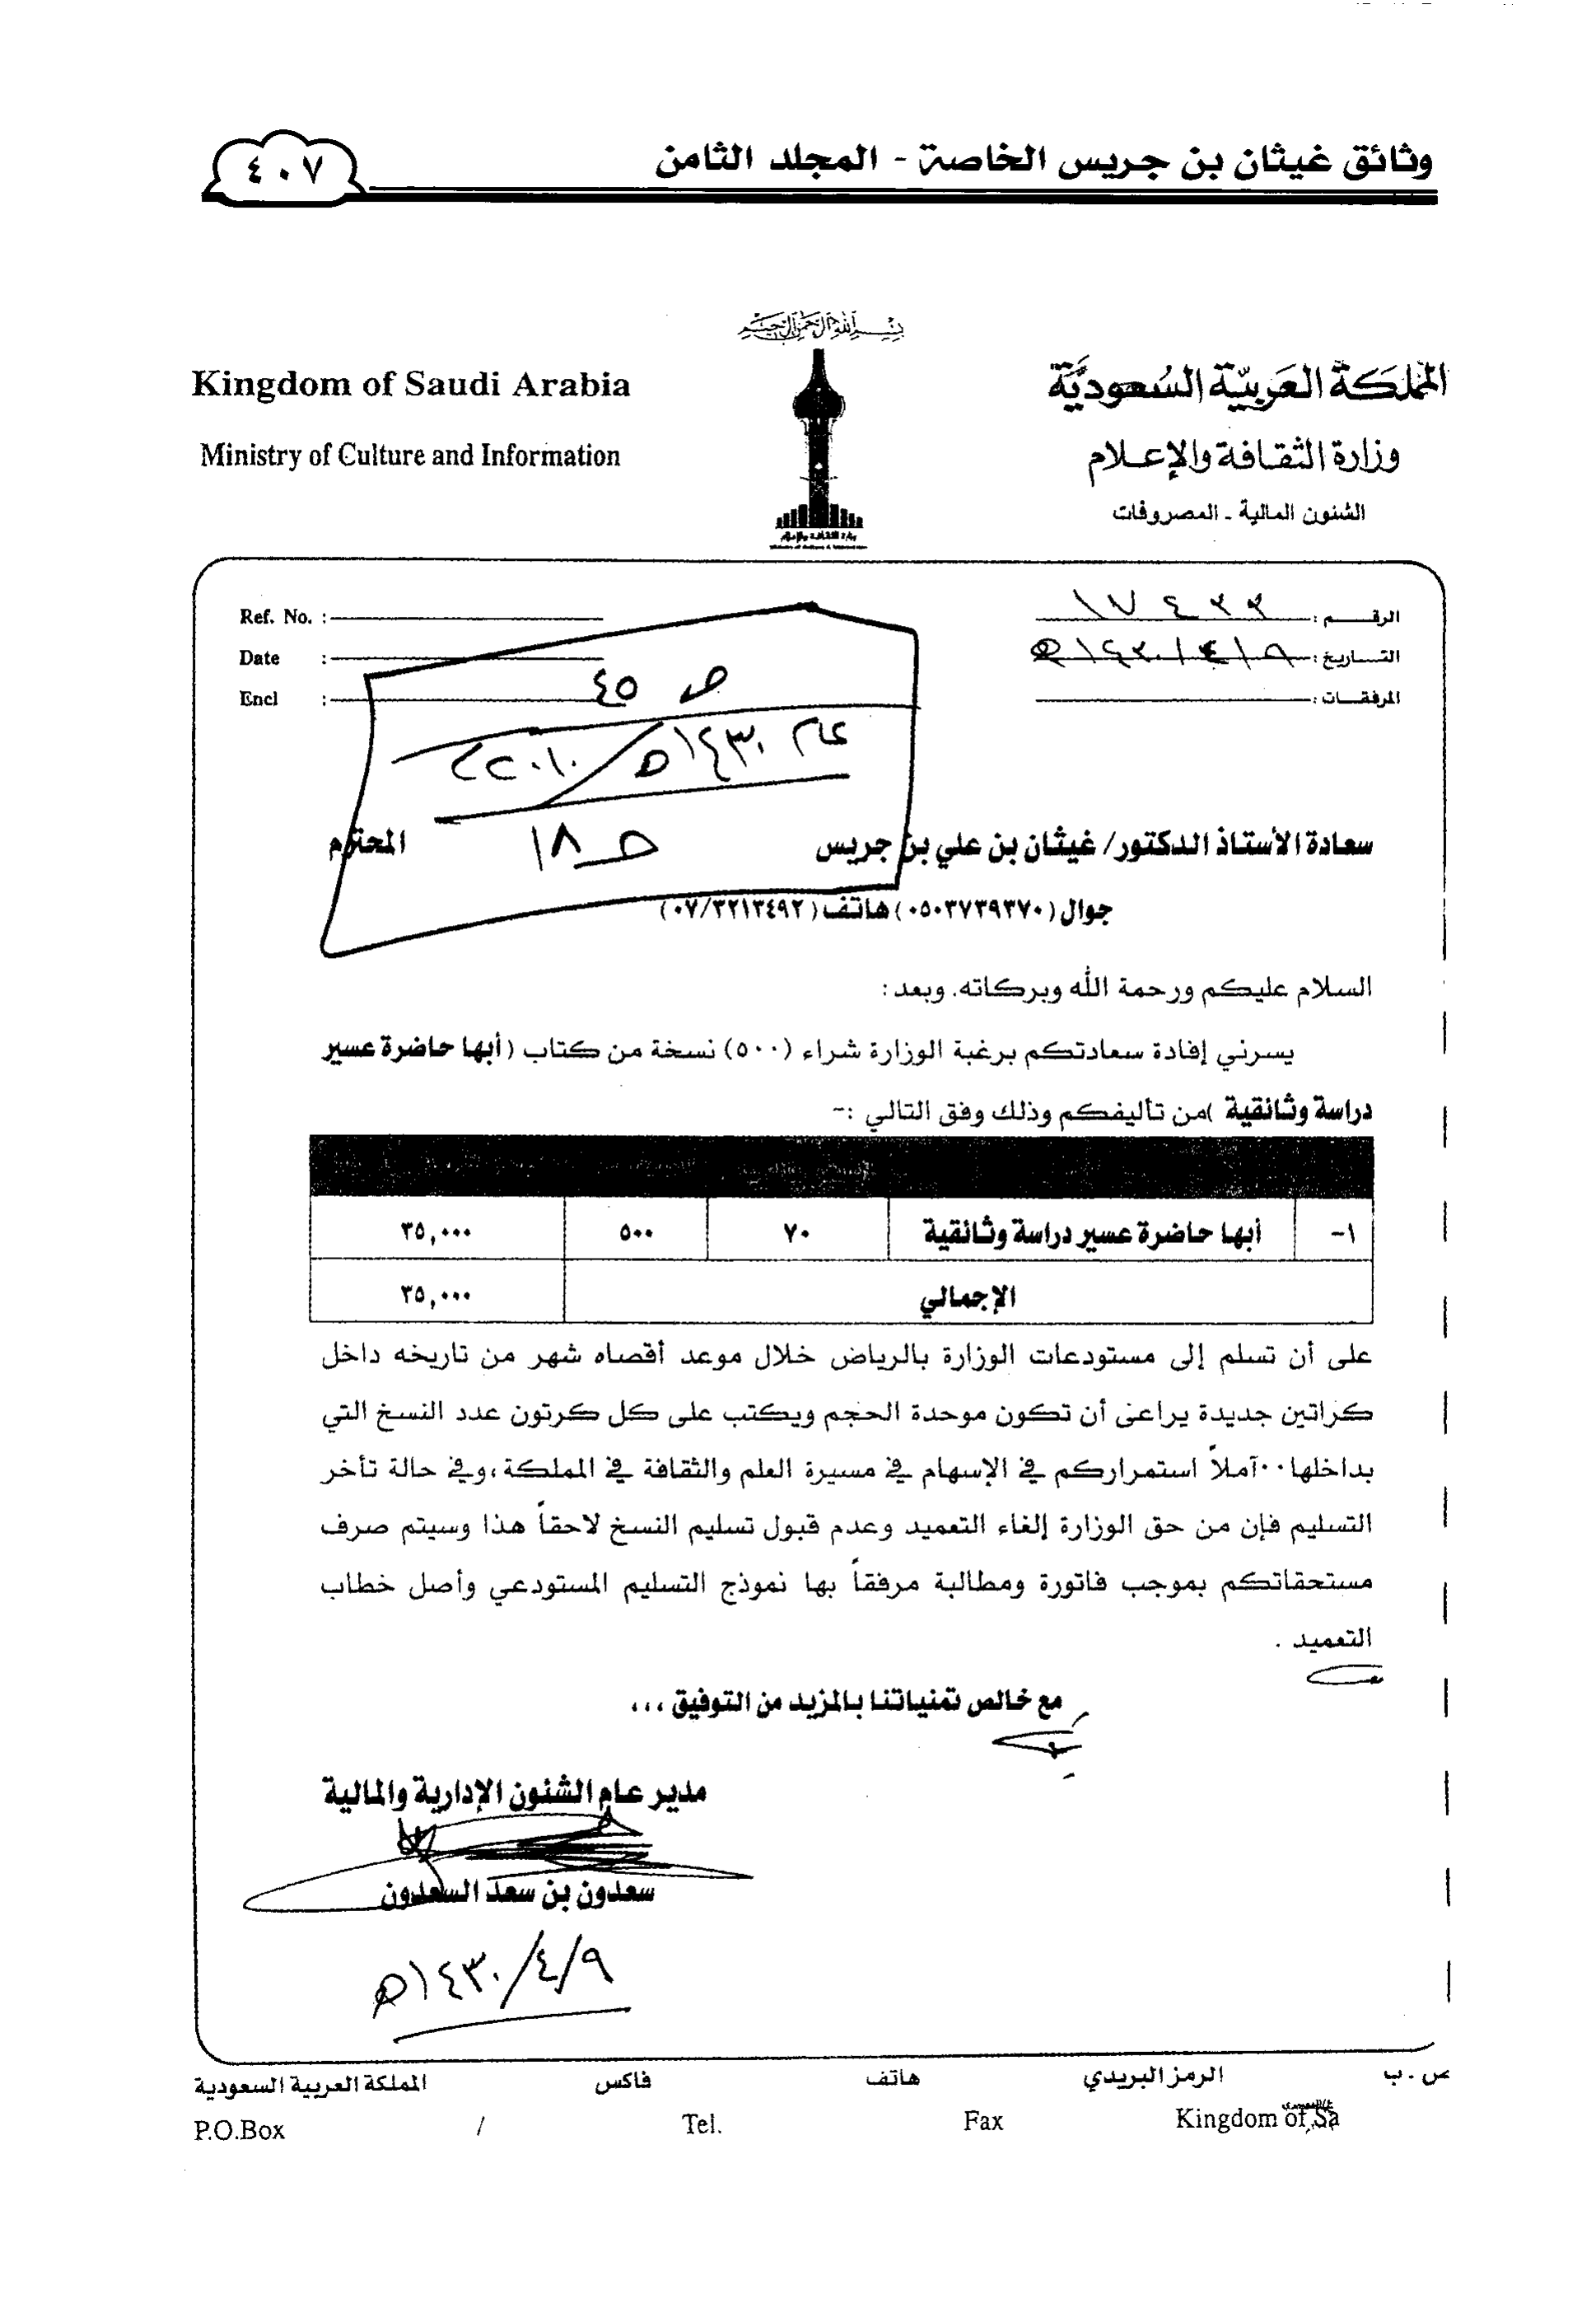 وثائق غيثان بن جريس الخاصة - المجلد الثامن
٤٠٧
بسم الله الرحمن الرحيم
المملكة العربية السعودية
Kingdom of Saudi Arabia
وزارة الثقافة والإعلام
Ministry of Culture and Information
الشئون المالية - المصروفات
وزارة الثقافة والإعلام
Ministry of Culture & Information
الرقم : ١٧٤٣٣
Ref. No. :
التاريخ : ١٤٣٠/٤/٩هـ
Date :
المرفقات :
Encl :
ص ٤٥
عام ١٤٣٠هـ/
ص ١٨
سعادة الأستاذ الدكتور/ غيثان بن علي بن جريس المحترم
جوال (٠٥٠٣٧٣٩٣٧٠) هاتف (٠٧/٣٢١٣٤٩٢)
السلام عليكم ورحمة الله وبركاته. وبعد :
يسرني إفادة سعادتكم برغبة الوزارة شراء (٥٠٠) نسخة من كتاب (أبها حاضرة عسير
دراسة وثائقية )من تأليفكم وذلك وفق التالي :-
١- أبها حاضرة عسير دراسة وثائقية ٧٠ ٥٠٠ ٣٥,٠٠٠
الإجمالي ٣٥,٠٠٠
على أن تسلم إلى مستودعات الوزارة بالرياض خلال موعد أقصاه شهر من تاريخه داخل
كراتين جديدة يراعى أن تكون موحدة الحجم ويكتب على كل كرتون عدد النسخ التي
بداخلها٠٠آملاً استمراركم في الإسهام في مسيرة العلم والثقافة في المملكة ،وفي حالة تأخر
التسليم فإن من حق الوزارة إلغاء التعميد وعدم قبول تسليم النسخ لاحقاً هذا وسيتم صرف
مستحقاتكم بموجب فاتورة ومطالبة مرفقاً بها نموذج التسليم المستودعي وأصل خطاب
التعميد .
مع خالص تمنياتنا بالمزيد من التوفيق ...
مدير عام الشئون الإدارية والمالية
سعدون بن سعد السعدون
١٤٣٠/٤/٩هـ
ص . ب الرمز البريدي هاتف فاكس المملكة العربية السعودية
P.O.Box / Tel. Fax Kingdom of Sa